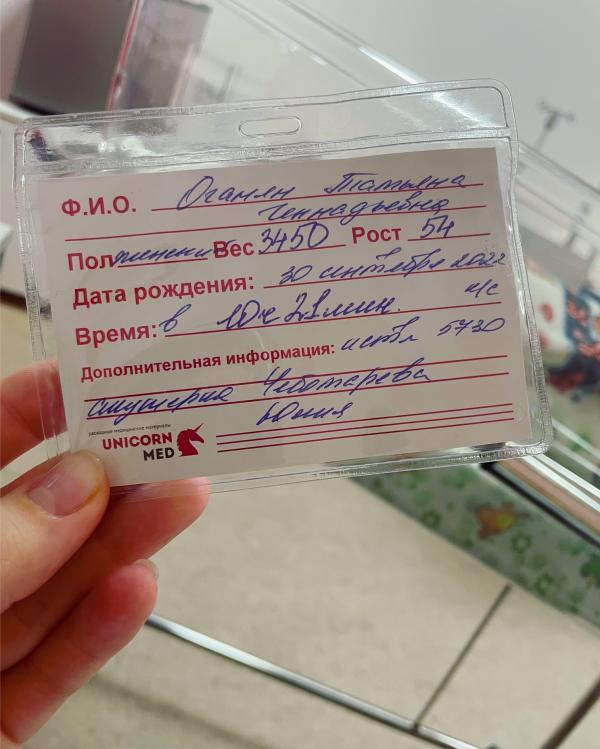 Ф.И.О. Оганян Татьяна
Геннадьевна
Пол женский Вес 3450 Рост 54
Дата рождения: 30 сентября 2022
Время: в 10ч 21мин.
Дополнительная информация: ист 5730
акушерка Чеботарева
Юлия
расходные медицинские материалы
UNICORN
MED